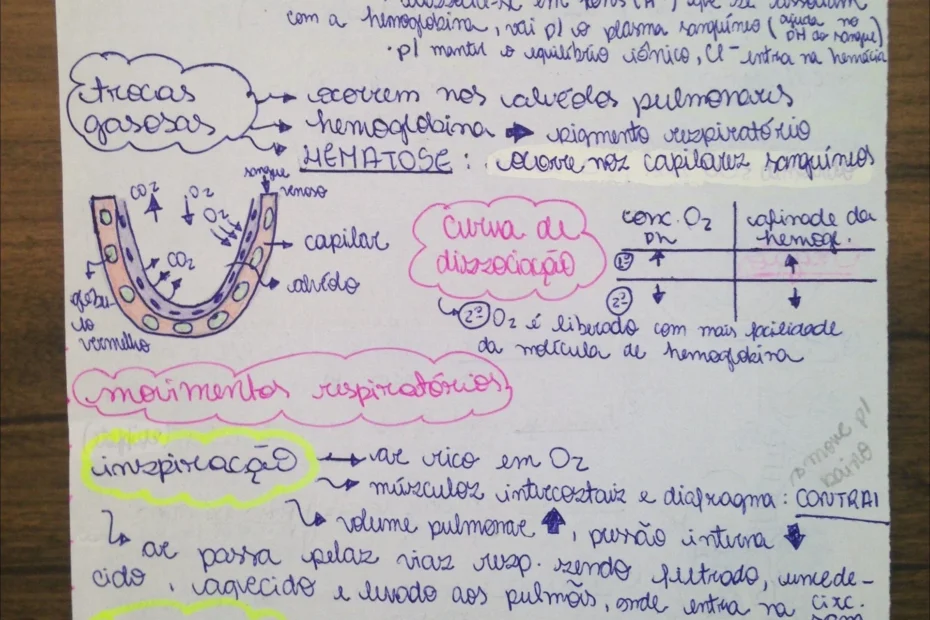 com a hemoglobina, vai p/ o plasma sanguíneo (ajuda no PH do sangue)
· p/ manter o equilíbrio iônico, Cl⁻ entra na hemácia
trocas gasosas
→ ocorrem nos alvéolos pulmonares
→ hemoglobina → pigmento respiratório
→ HEMATOSE: ocorre nos capilares sanguíneos
sangue venoso
CO2
O2
O2
CO2
capilar
alvéolo
glóbulo vermelho
curva de dissociação
conc. O2
PH
afinade da hemogl.
1º ↑ ↑
2º ↓ ↓
2º O2 é liberado com mais facilidade
da molécula de hemoglobina
movimentos respiratórios
inspiração → ar rico em O2
→ músculos intercostais e diafragma: CONTRAI
→ volume pulmonar ↑, pressão interna ↓
→ ar passa pelas vias resp. sendo filtrado, umede-
cido, aquecido e levado aos pulmões, onde entra na circ.